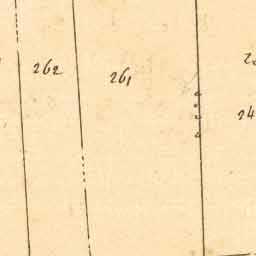 262
261
24